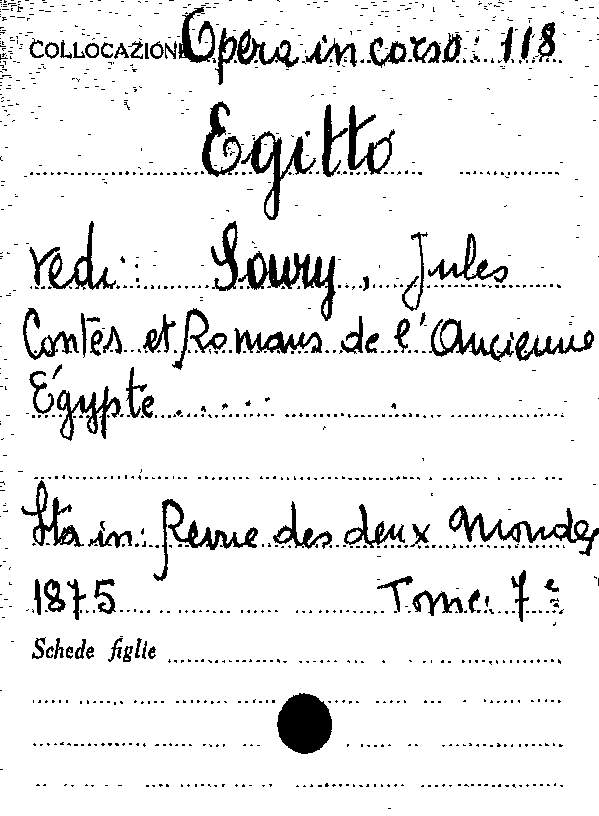 COLLOCAZIONE Opera in corso: 118
Egitto
vedi: Soury, Jules
Contes et Romans de l'Ancienne
Égypte.....
Sta in: Revue des deux Mondes
1875 Tome 7e
Schede figlie